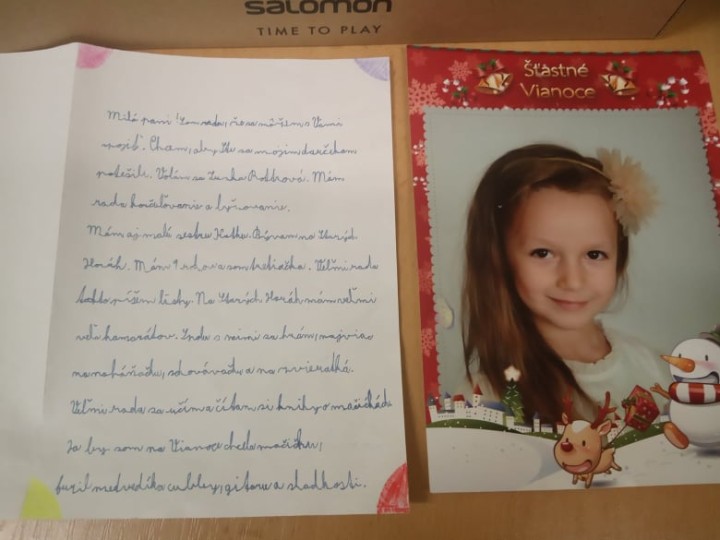 salomon
TIME TO PLAY
Šťastné
Vianoce
Milá pani! Som rada, že sa môžem s Vami
Chcem, aby Ste sa mojim darčekom
potešili. Volám sa Rottrová. Mám
rada korčuľovanie a lyžovanie.
Mám aj malú sestru Katku. Bývam na Starých
Horách. Mám 9 rokov a som tretiačka. Veľmi rada
takto píšem listy. Na Starých Horách mám veľmi
veľa kamarátov. s nimi sa hrám, najviac
na naháňačku, schovávačku a na zvieratká.
Veľmi rada sa učím a čítam si knihy o mačičkách
Ja by som na Vianoce chcela mačičku,
medvedíka cubby, gitaru a sladkosti.